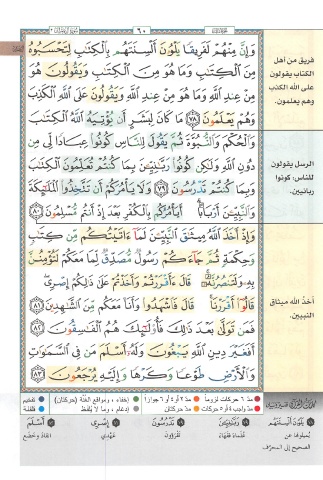 سورة آل عمران ٣
٦٠
الجزء الثالث
وَإِنَّ مِنْهُمْ لَفَرِيقًا يَلْوُۥنَ أَلْسِنَتَهُم بِٱلْكِتَٰبِ لِتَحْسَبُوهُ
مِنَ ٱلْكِتَٰبِ وَمَا هُوَ مِنَ ٱلْكِتَٰبِ وَيَقُولُونَ هُوَ
مِنْ عِندِ ٱللَّهِ وَمَا هُوَ مِنْ عِندِ ٱللَّهِ وَيَقُولُونَ عَلَى ٱللَّهِ ٱلْكَذِبَ
وَهُمْ يَعْلَمُونَ ٧٨ مَا كَانَ لِبَشَرٍ أَن يُؤْتِيَهُ ٱللَّهُ ٱلْكِتَٰبَ
وَٱلْحُكْمَ وَٱلنُّبُوَّةَ ثُمَّ يَقُولَ لِلنَّاسِ كُونُوا۟ عِبَادًا لِّى مِن
دُونِ ٱللَّهِ وَلَٰكِن كُونُوا۟ رَبَّٰنِيِّۦنَ بِمَا كُنتُمْ تُعَلِّمُونَ ٱلْكِتَٰبَ
وَبِمَا كُنتُمْ تَدْرُسُونَ ٧٩ وَلَا يَأْمُرَكُمْ أَن تَتَّخِذُوا۟ ٱلْمَلَٰٓئِكَةَ
وَٱلنَّبِيِّۦنَ أَرْبَابًا أَيَأْمُرُكُم بِٱلْكُفْرِ بَعْدَ إِذْ أَنتُم مُّسْلِمُونَ ٨٠
وَإِذْ أَخَذَ ٱللَّهُ مِيثَٰقَ ٱلنَّبِيِّۦنَ لَمَآ ءَاتَيْتُكُم مِّن كِتَٰبٍ
وَحِكْمَةٍ ثُمَّ جَآءَكُمْ رَسُولٌ مُّصَدِّقٌ لِّمَا مَعَكُمْ لَتُؤْمِنُنَّ
بِهِۦ وَلَتَنصُرُنَّهُۥ قَالَ ءَأَقْرَرْتُمْ وَأَخَذْتُمْ عَلَىٰ ذَٰلِكُمْ إِصْرِى
قَالُوٓا۟ أَقْرَرْنَا قَالَ فَٱشْهَدُوا۟ وَأَنَا۠ مَعَكُم مِّنَ ٱلشَّٰهِدِينَ ٨١
فَمَن تَوَلَّىٰ بَعْدَ ذَٰلِكَ فَأُو۟لَٰٓئِكَ هُمُ ٱلْفَٰسِقُونَ ٨٢
أَفَغَيْرَ دِينِ ٱللَّهِ يَبْغُونَ وَلَهُۥٓ أَسْلَمَ مَن فِى ٱلسَّمَٰوَٰتِ
وَٱلْأَرْضِ طَوْعًا وَكَرْهًا وَإِلَيْهِ يُرْجَعُونَ ٨٣
فريق من أهل
الكتاب يقولون
على الله الكذب
وهم يعلمون.
الرسل يقولون
للناس: كونوا
ربانيين.
أخذ الله ميثاق
النبيين.
مدّ ٦ حركات لزوماً مدّ ٢ أو ٤ أو ٦ جوازاً إخفاء، ومواقع الغُنَّة (حركتان) تفخيم
مدّ واجب ٤ أو ٥ حركات مدّ حركتان إدغام، وما لا يُلفَظ قلقلة
٧٨ يَلْوُونَ أَلْسِنَتَهُم
يُميلونها عن
الصحيح إلى المحرَّف
٧٩ رَبَّانِيِّينَ
علماء فقهاء
٧٩ تَدْرُسُونَ
تقرؤون
٨١ إِصْرِي
عهدي
٨٣ أَسْلَمَ
انقاد وخضع